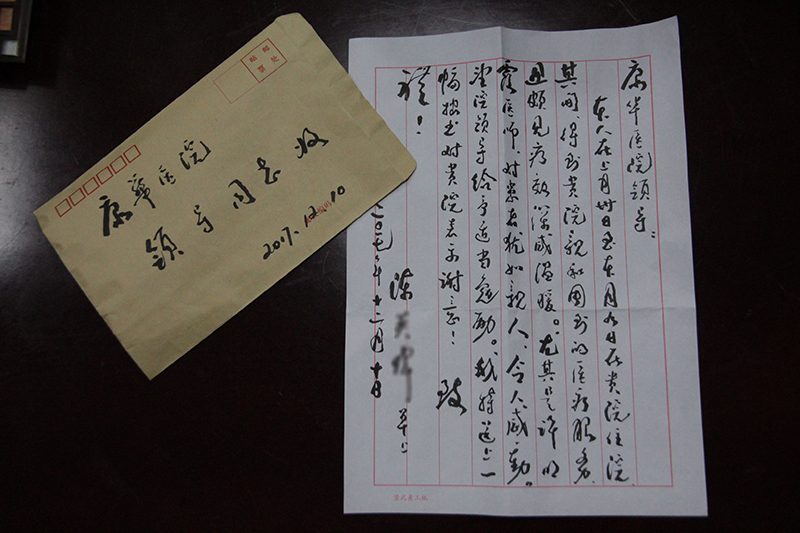 康華医院
领导同志 收
2017.12.10
康华医院领导：
本人在上月卅日至本月九日在贵院住院
其间、得到贵院亲和周到的医疗服务，
且颇见疗效深感温暖。尤其是许明
医师，对患者犹如亲人、令人感动。
望院领导给予适当勉励。特送上一
幅拙书对贵院表示谢意！ 致
礼！
陈 草上
二〇一七年十二月十日